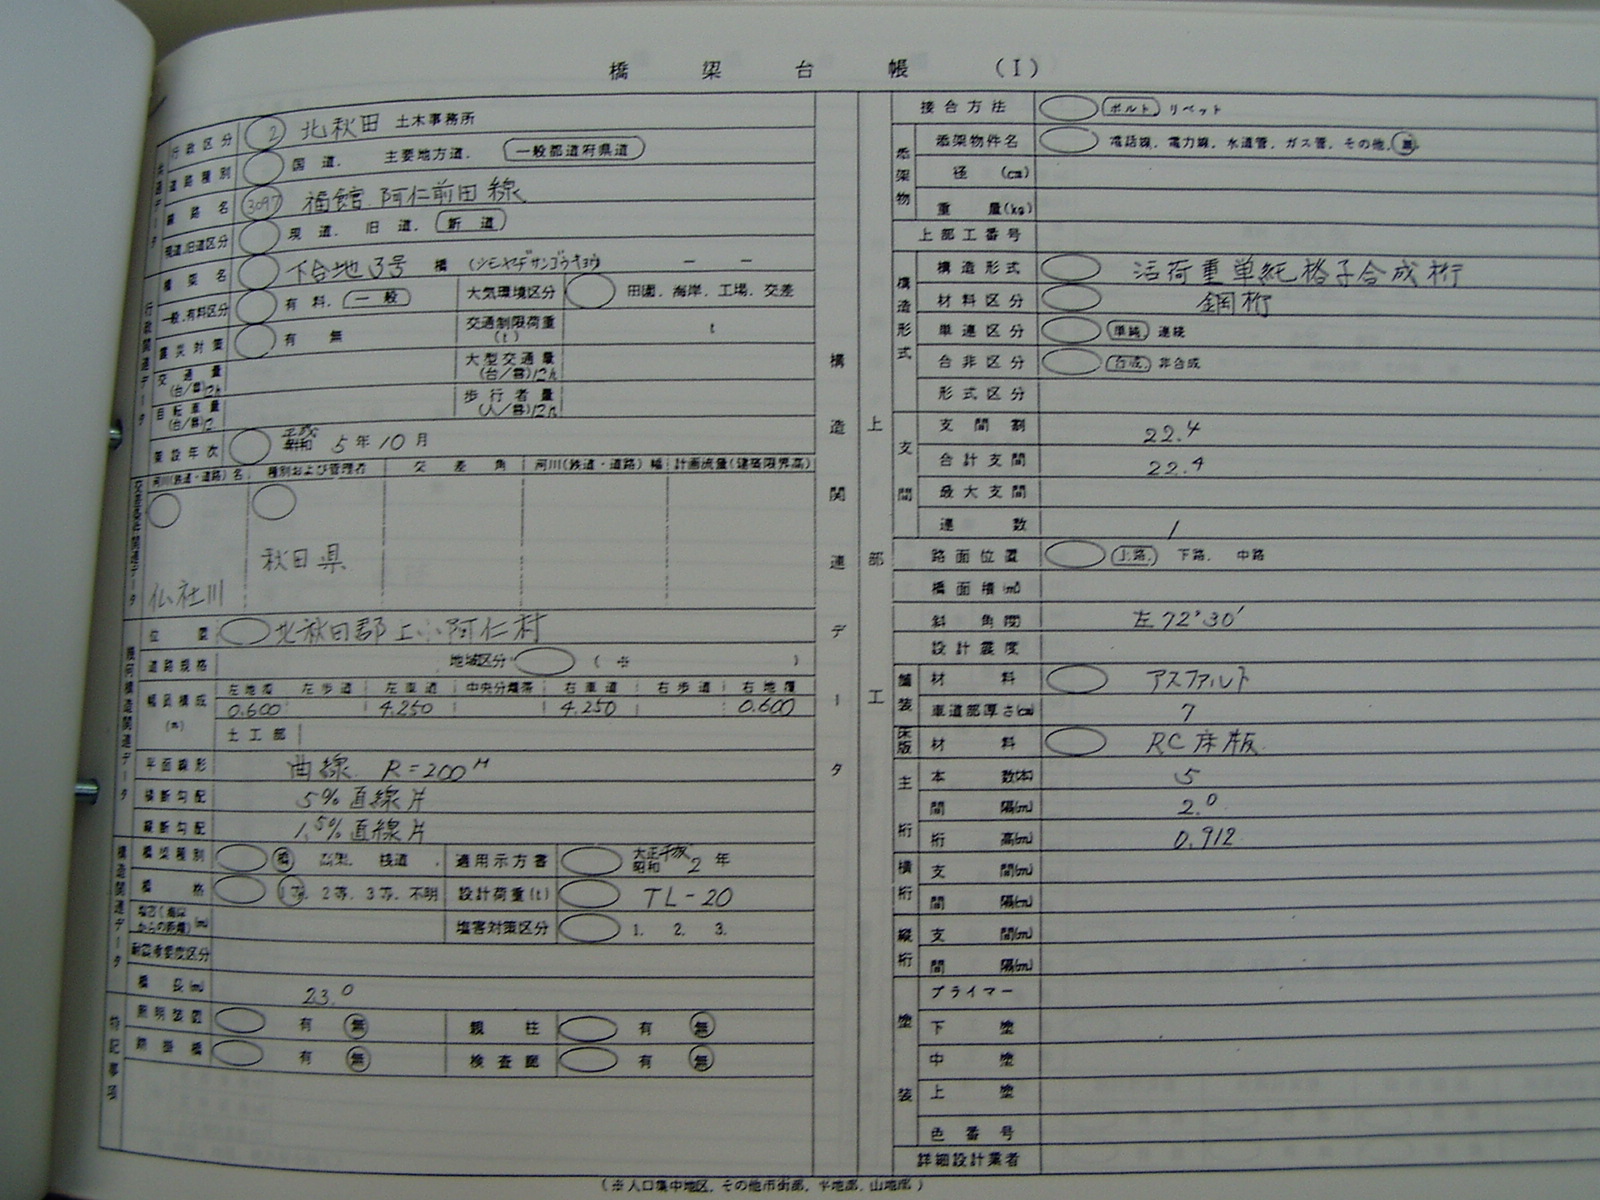 橋梁台帳 (I)
行政区分 2 北秋田 土木事務所
道路種別 国道. 主要地方道. 一般都道府県道
路線名 3097 福館 阿仁前田 線
現道.旧道区分 現道. 旧道. 新道
橋梁名 3号 橋
一般.有料区分 有料. 一般 大気環境区分 田園. 海岸. 工場. 交差
震災対策 有 無 交通制限荷重(t) t
交通量(台/12h) 大型交通量(台/12h)
自転車量(台/12) 歩行者量(人/12h)
架設年次 平成 昭和 5年10月
河川(鉄道・道路)名 種別および管理者 交差角 河川(鉄道・道路)幅 計画流量(建築限界高)
仏社川 秋田県
位置 北秋田郡上小阿仁村
道路規格 地域区分 ( ※ )
幅員構成(m) 左地覆 左歩道 左車道 中央分離帯 右車道 右歩道 右地覆
0.600 4.250 4.250 0.600
土工部
平面線形 曲線 R=200M
横断勾配 5% 直線片
縦断勾配 1.5% 直線片
橋梁種別 橋 高架. 桟道. 適用示方書 大正 昭和 平成 2年
橋格 1等. 2等. 3等. 不明 設計荷重(t) TL-20
塩害対策区分 1. 2. 3.
耐震重要度区分
橋長(m) 23.0
照明装置 有 無 親柱 有 無
添架橋 有 無 検査路 有 無
特記事項
構造関連データ
上部工
接合方法 ボルト リベット
添架物 添架物件名 電話線. 電力線. 水道管. ガス管. その他. 無
径 (cm)
重量(kg)
上部工番号
構造形式 構造形式 活荷重単純格子合成桁
材料区分 鋼桁
単連区分 単純 連続
合非区分 合成. 非合成
形式区分
支間 支間割 22.4
合計支間 22.4
最大支間
連数 1
路面位置 上路. 下路. 中路
橋面積(㎡)
斜角度 左72°30′
設計震度
舗装 材料 アスファルト
車道部厚さ(cm) 7
床版 材料 RC床版
主桁 本数(本) 5
間隔(m) 2.0
桁高(m) 0.912
横桁 支間(m)
間隔(m)
縦桁 支間(m)
間隔(m)
塗装 プライマー
下塗
中塗
上塗
色番号
詳細設計業者
(※人口集中地区. その他市街部. 平地部. 山地部)